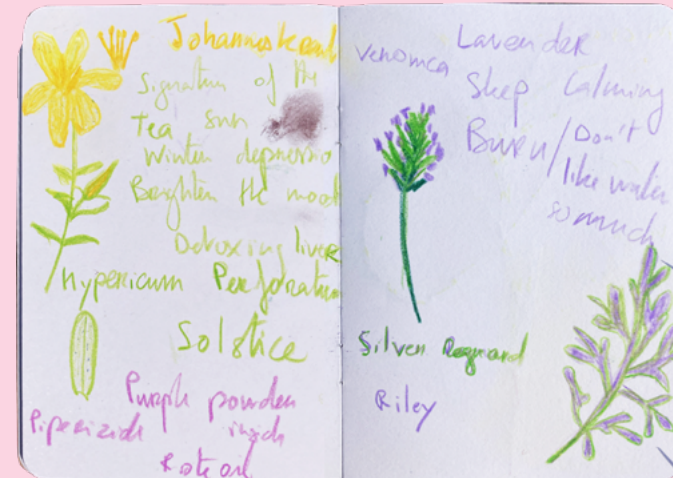 Johanneskraut
Signatur of the
Sun
Tea
Winter depressio
Brighten the mood
Detoxing liver
Hypericum Perforatum
Solstice
Purple powder
Rote oil
Lavender
Sleep Calming
Burn / Don't
like water
so much
Silver
Riley